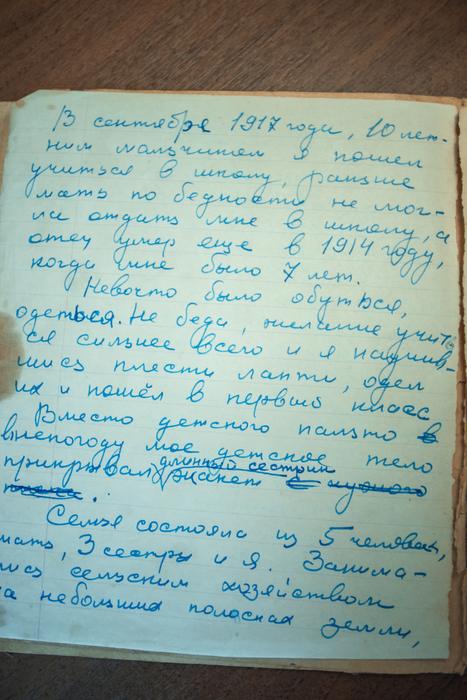 В сентябре 1917 года, 10 лет-
ним мальчиком я пошел
учиться в школу, раньше
мать по бедности не мог-
ла отдать мне в школу, а
отец умер еще в 1914 году,
когда мне было 7 лет.
Невочто было обуться,
одеться. Не беда, желание учить
ся сильнее всего и я научив-
шись плести лапти, одел
их и пошёл в первый класс
Вместо детского пальто в
внепогоду мое детское тело
прикрывал длинный сестрин жакет с чужого
плеча.
Семья состояла из 5 человек,
мать, 3 сестры и я. Занима-
лись сельским хозяйством
на небольших полосках земли,